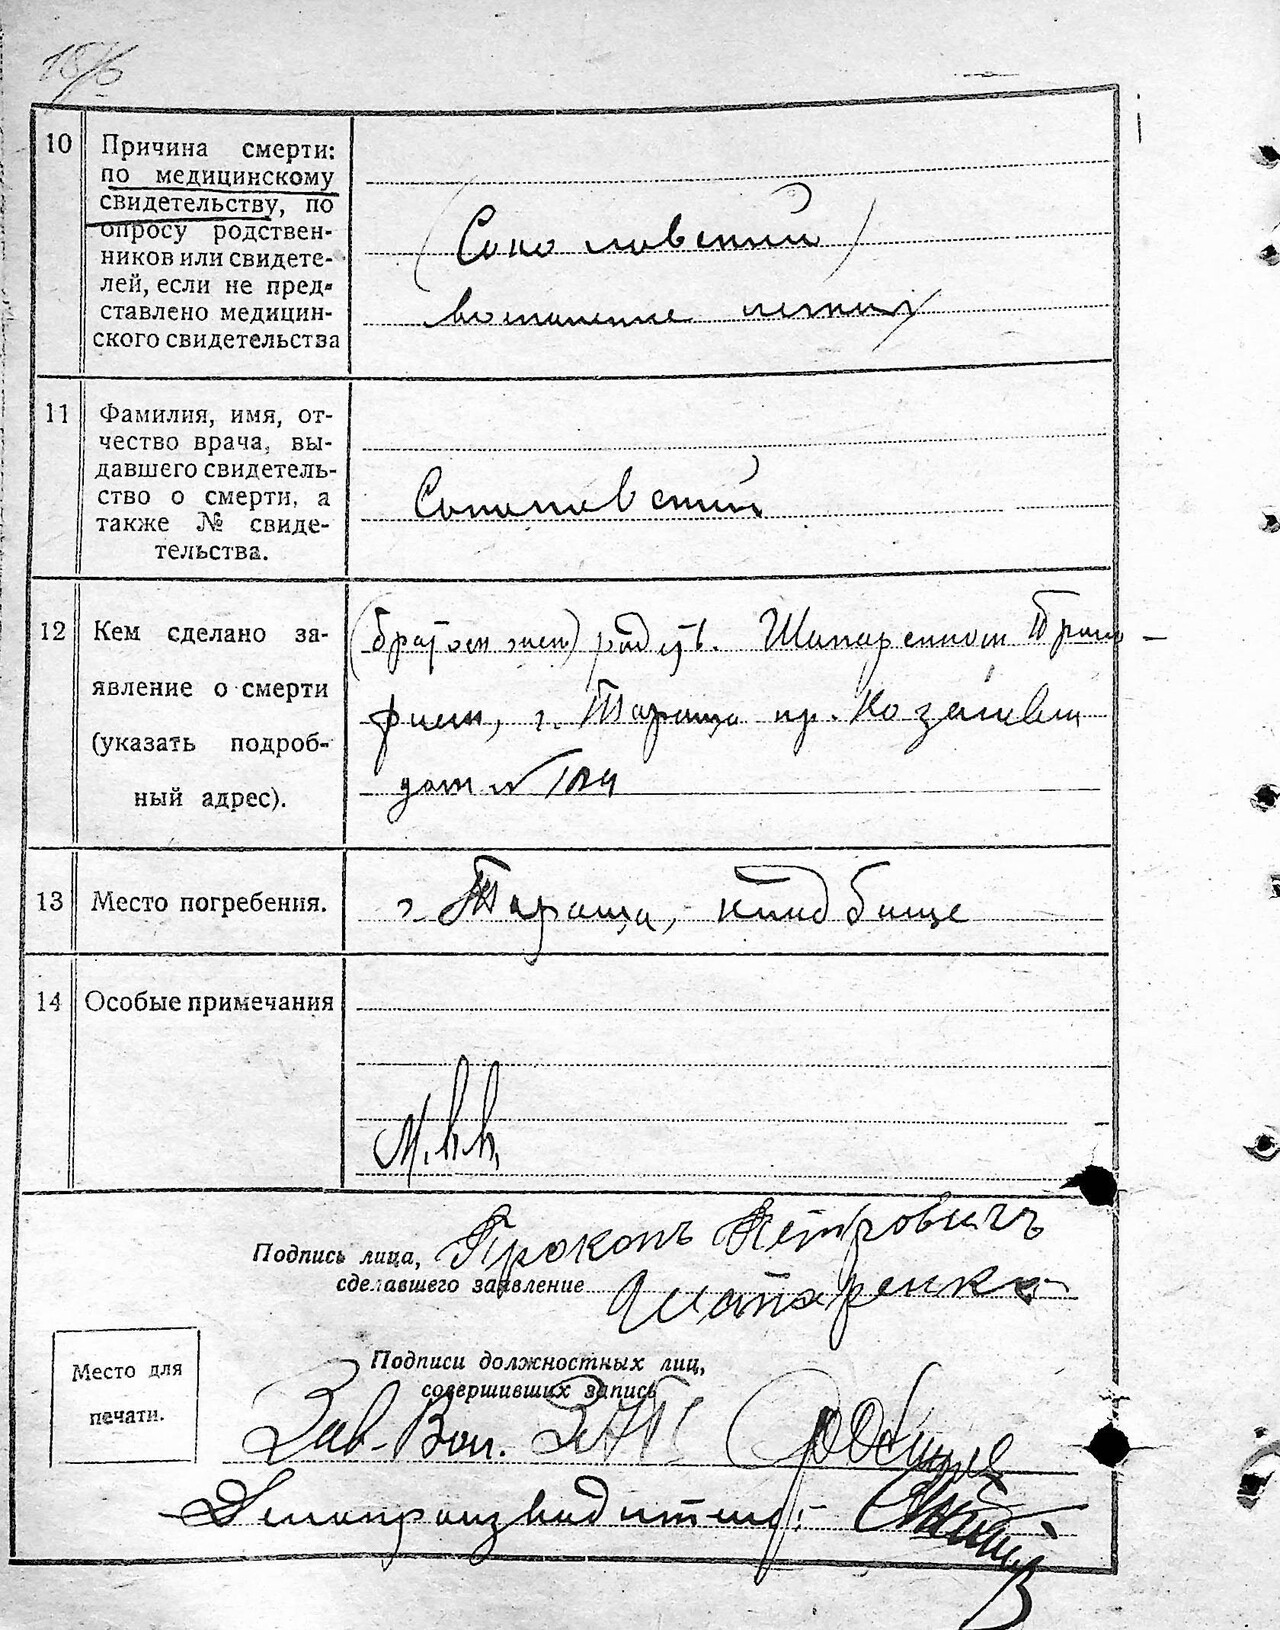 10
Причина смерти:
по медицинскому
свидетельству, по
опросу родствен-
ников или свидете-
лей, если не пред-
ставлено медицин-
ского свидетельства
(Соколовский)
воспаление легких
11
Фамилия, имя, от-
чество врача, вы-
давшего свидетель-
ство о смерти, а
также № свиде-
тельства.
Соколовский
12
Кем сделано за-
явление о смерти
(указать подроб-
ный адрес).
г. Тараща
дом №
13
Место погребения.
г. Тараща, кладбище
14
Особые примечания
Подпись лица,
сделавшего заявление
Прокопъ Петровичъ
Шапаренко
Место для
печати.
Подписи должностных лиц,
совершивших запись
Зав.
Делопроизводитель: